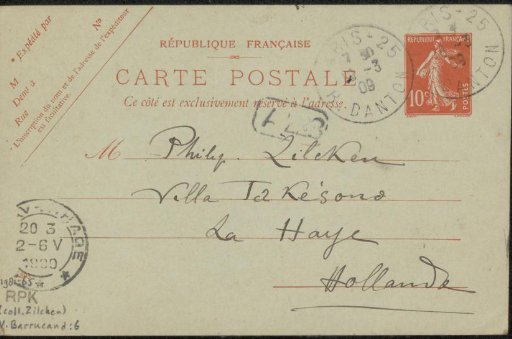 * Expédié par
N°
M
Dem^t à
Rue
L'inscription du nom et de l'adresse de l'expéditeur
est facultative.
RÉPUBLIQUE FRANÇAISE
CARTE POSTALE
Ce côté est exclusivement réservé à l'adresse.
PARIS - 25
-3
09
R. DANTON
RÉPUBLIQUE FRANÇAISE
10c
POSTES
M Philip. Zilcken
Villa
La Haye
Hollande
20 3
2-6 V
RPK
(coll. Zilcken)
V. Barrucand: 6